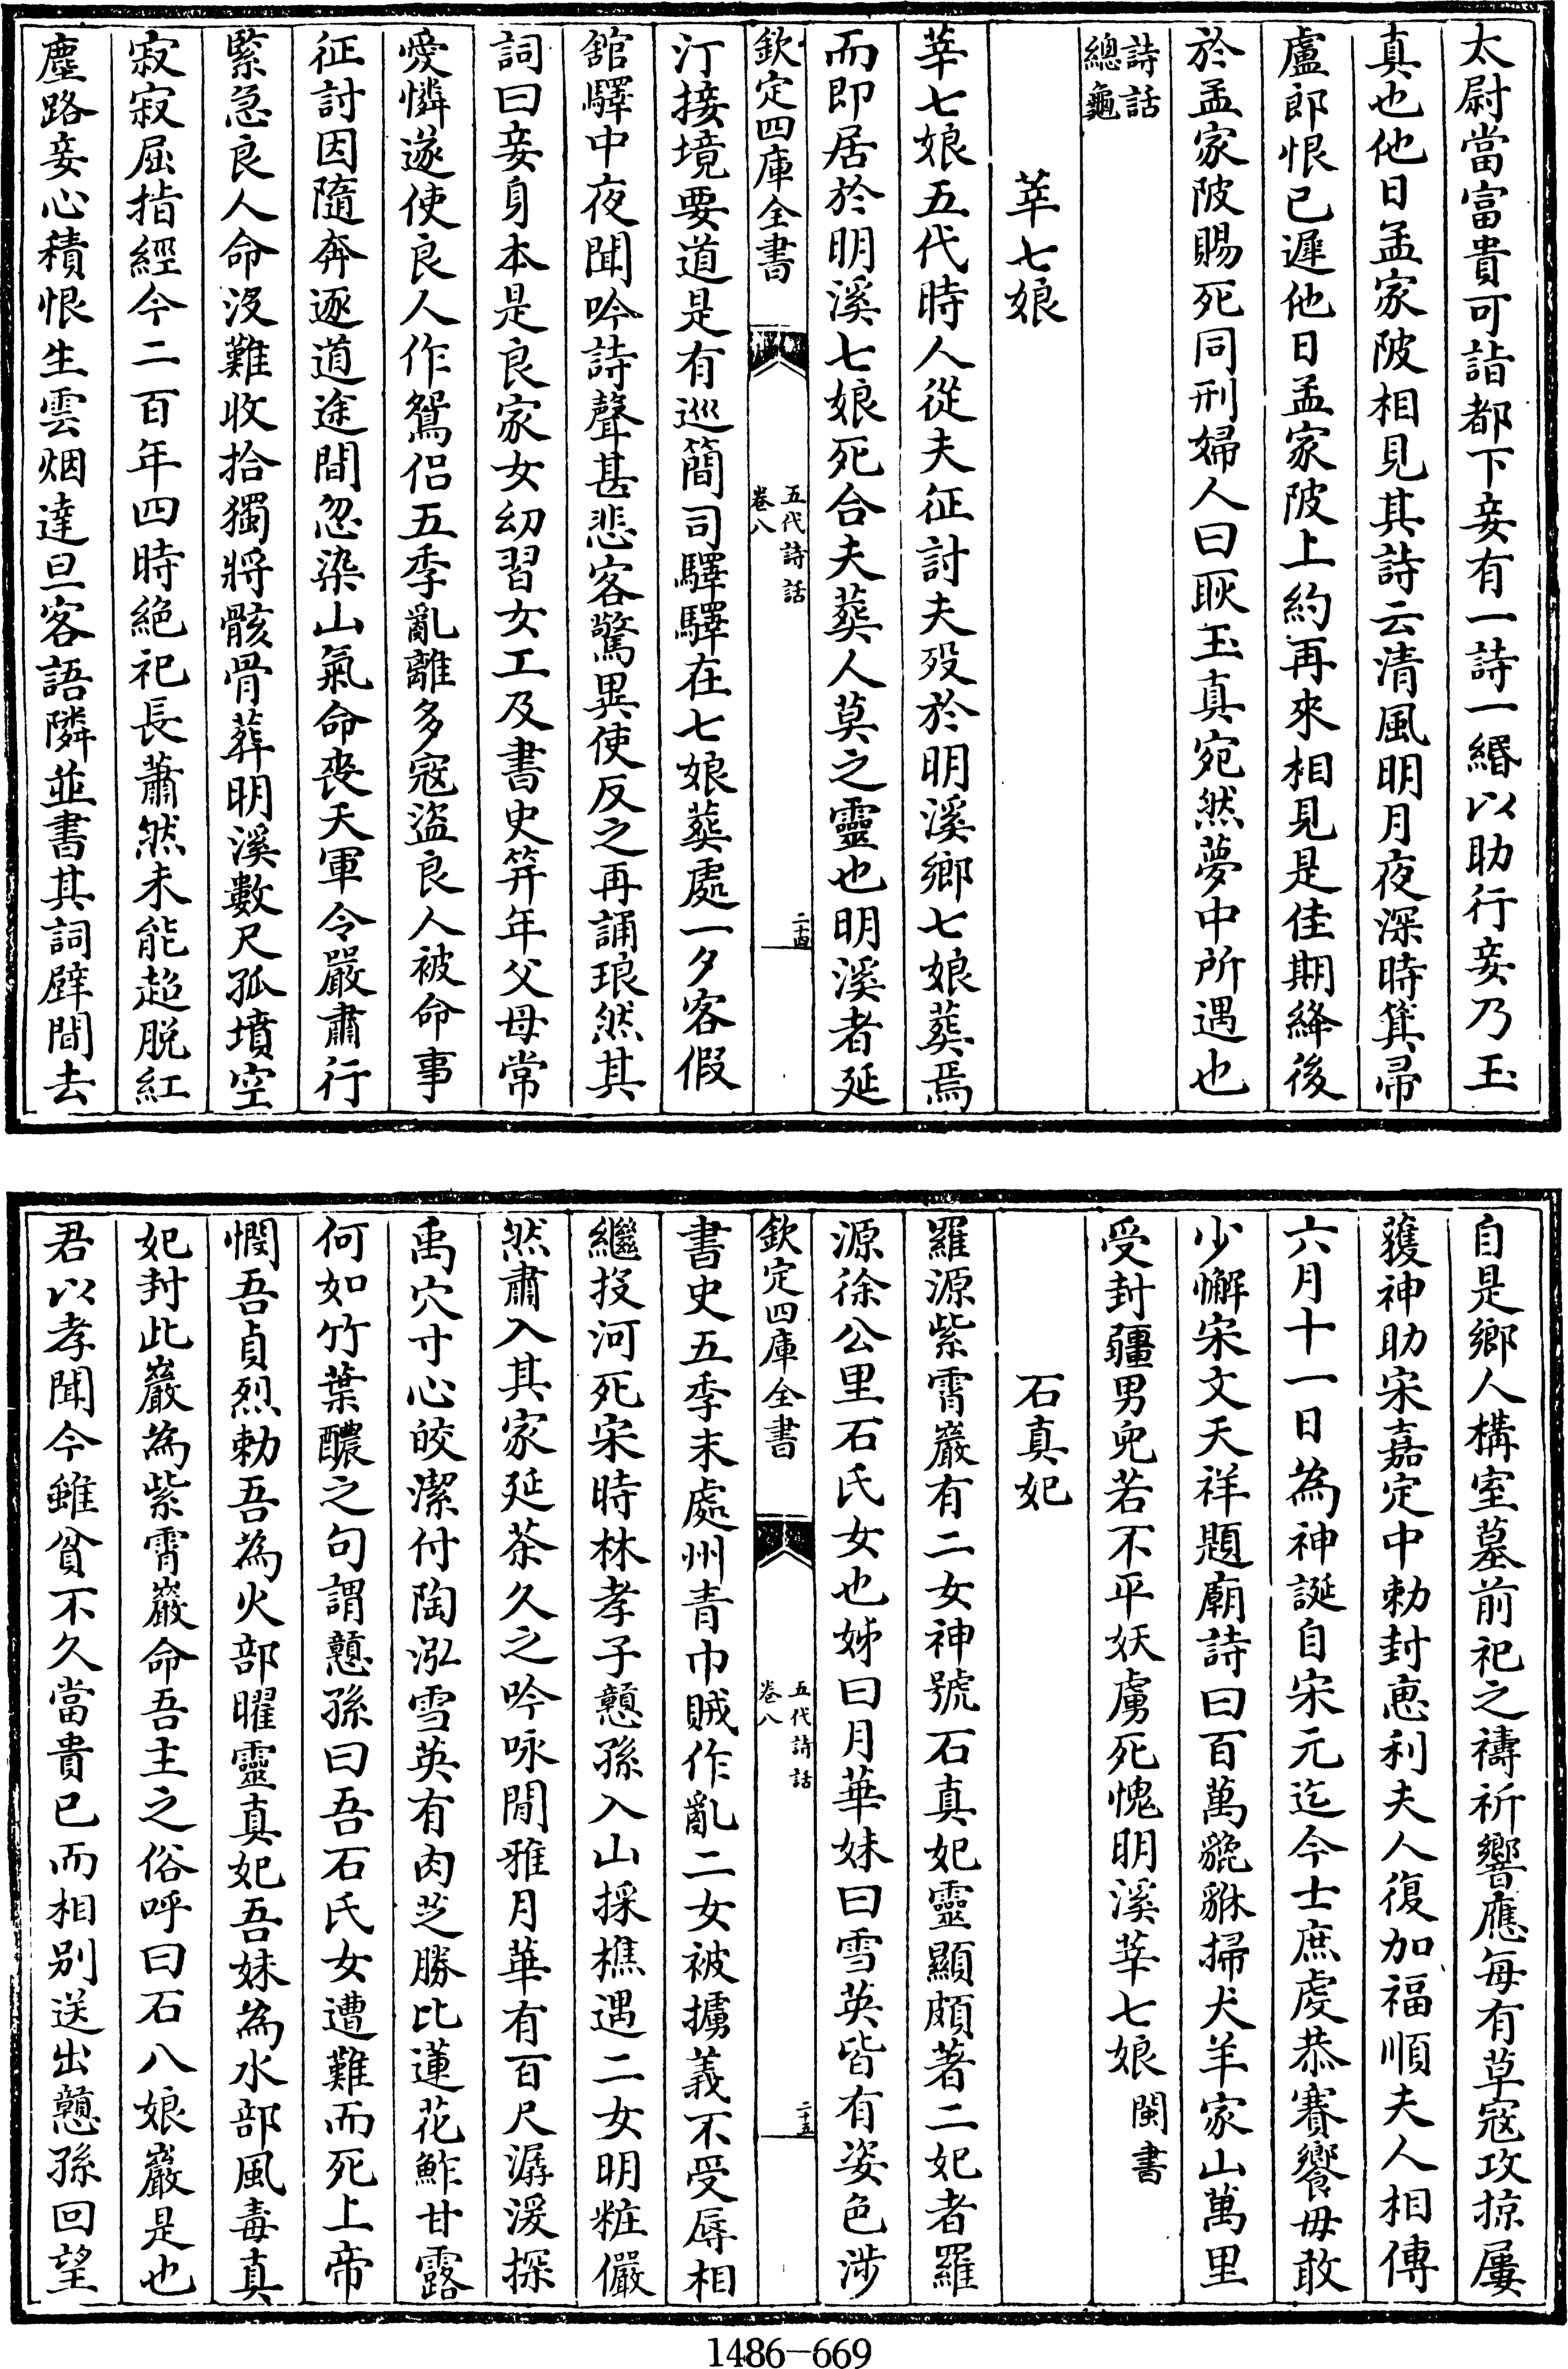 太尉當富貴可詣都下妾有一詩一緡以助行妾乃玉
真也他日孟家陂相見其詩云清風明月夜深時箕帚
盧郎恨已遲他日孟家陂上約再來相見是佳期絳後
於孟家陂賜死同刑婦人曰耿玉真宛然夢中所遇也
詩話
總龜
莘七娘
莘七娘五代時人從夫征討夫殁於明溪鄉七娘葬焉
而即居於明溪七娘死合夫葬人莫之靈也明溪者延
欽定四庫全書
五代詩話
卷八
二十四
汀接境要道是有巡簡司驛驛在七娘葬處一夕客假
舘驛中夜聞吟詩聲甚悲客驚異使反之再誦琅然其
詞曰妾身本是良家女幼習女工及書史笄年父母常
愛憐遂使良人作鴛侣五季亂離多寇盜良人被命事
征討因隨奔逐道途間忽染山氣命喪天軍令嚴肅行
緊急良人命没難收拾獨將骸骨葬明溪數尺孤墳空
寂寂屈指經今二百年四時絶祀長蕭然未能超脱紅
塵路妾心積恨生雲烟達旦客語隣並書其詞壁間去
自是鄉人構室墓前祀之禱祈響應每有草寇攻掠屢
獲神助宋嘉定中勅封惠利夫人復加福順夫人相傳
六月十一日為神誕自宋元迄今士庶虔恭賽饗毋敢
少懈宋文天祥題廟詩曰百萬貔貅掃犬羊家山萬里
受封疆男兒若不平妖虜死愧明溪莘七娘
閩書
石真妃
羅源紫霄巖有二女神號石真妃靈顯頗著二妃者羅
源徐公里石氏女也姊曰月華妹曰雪英皆有姿色涉
欽定四庫全書
五代詩話
卷八
二十五
書史五季末處州青巾賊作亂二女被擄義不受辱相
繼投河死宋時林孝子戇孫入山採樵遇二女明粧儼
然肅入其家延茶久之吟咏閒雅月華有百尺潺湲探
禹穴寸心皎潔付陶泓雪英有肉芝勝比蓮花鮓甘露
何如竹葉醲之句謂戇孫曰吾石氏女遭難而死上帝
憫吾貞烈勅吾為火部曜靈真妃吾妹為水部風毒真
妃封此巖為紫霄巖命吾主之俗呼曰石八娘巖是也
君以孝聞今雖貧不久當貴已而相别送出戇孫回望
1486-669